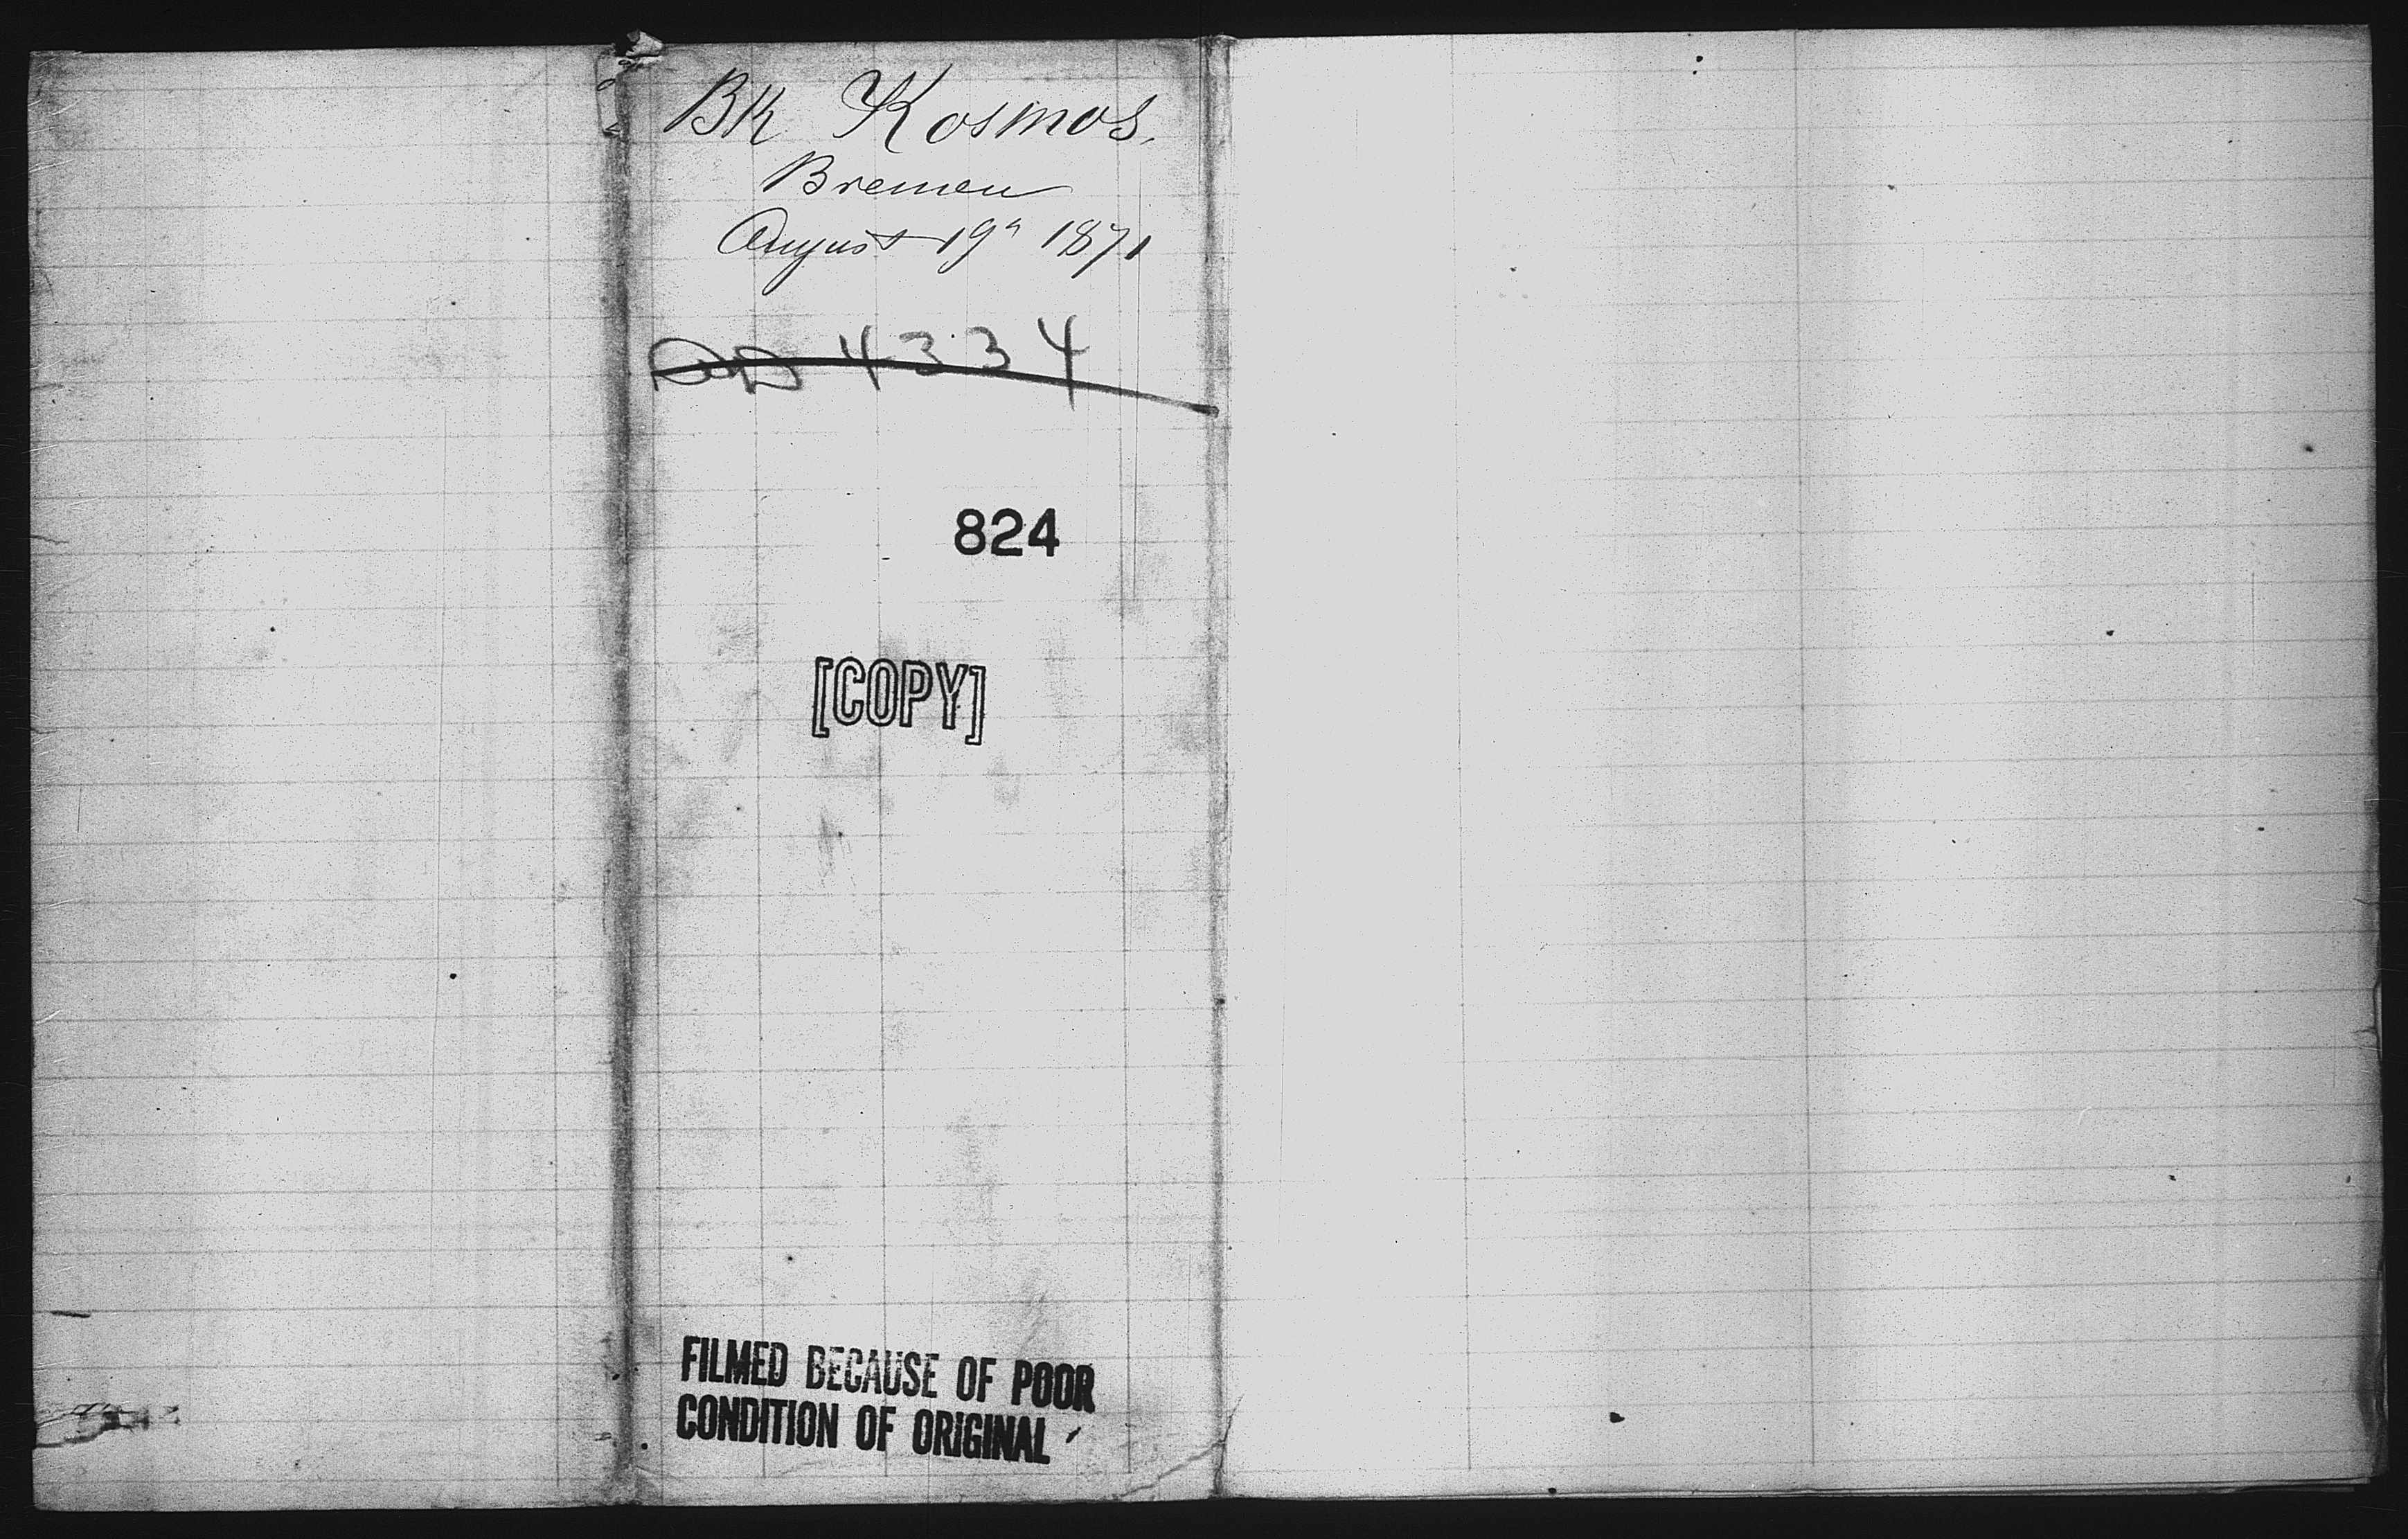 Bk Kosmos.
Bremen
August 19" 1871
4334
824
[COPY]
FILMED BECAUSE OF POOR
CONDITION OF ORIGINAL